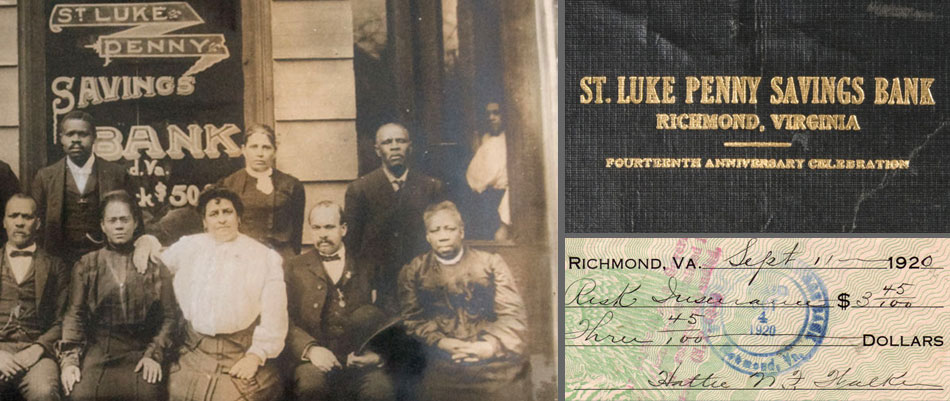 ST. LUKE
PENNY
SAVINGS
BANK
d, Va.
$50
ST. LUKE PENNY SAVINGS BANK
RICHMOND, VIRGINIA
FOURTEENTH ANNIVERSARY CELEBRATION
RICHMOND, VA. Sept 11 1920
Risk Insurance $3 45/100
Three 45/100 DOLLARS
1920
Hattie N. F. Walker